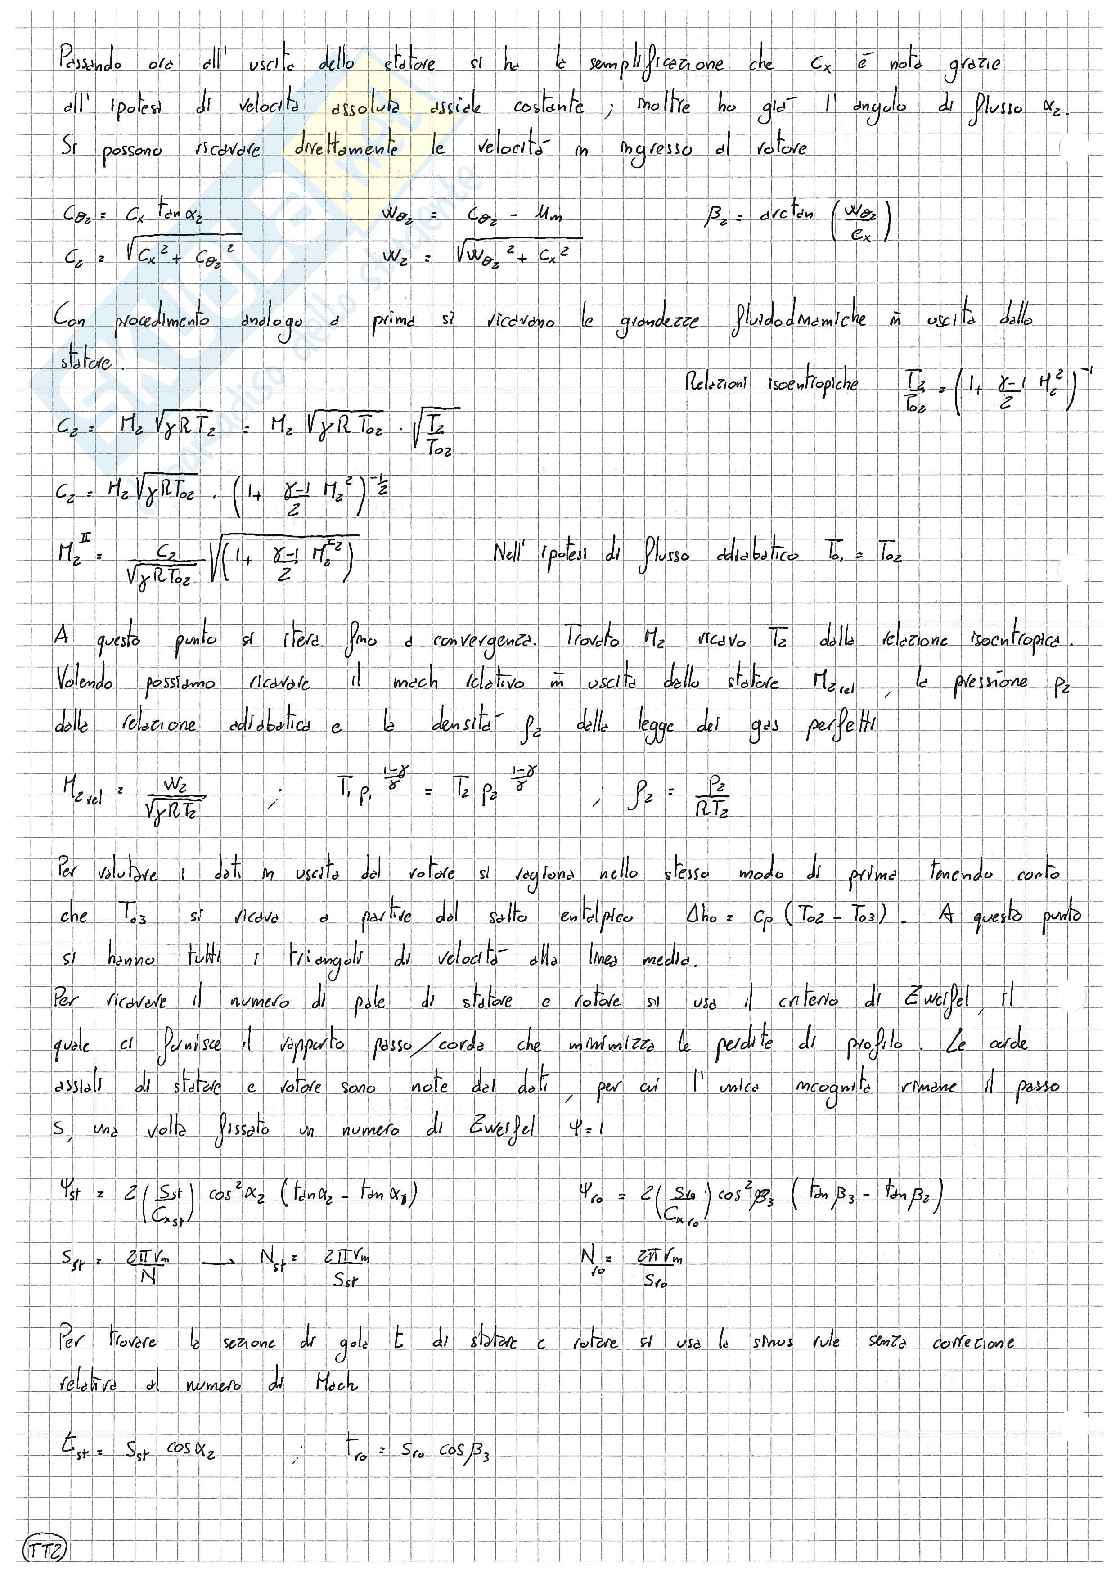 Passando ora all'uscita dello statore si ha la semplificazione che Cx è nota grazie
all'ipotesi di velocità assoluta assiale costante ; inoltre ho già l'angolo di flusso α2.
Si possono ricavare direttamente le velocità in ingresso al rotore
Cθ2 = Cx tanα2    Wθ2 = Cθ2 - Um    β2 = arctan (Wθ2/Cx)
C2 = √(Cx² + Cθ2²)    W2 = √(Wθ2² + Cx²)
Con procedimento analogo a prima si ricavano le grandezze fluidodinamiche in uscita dallo
statore.
Relazioni isoentropiche    T2/T02 = (1 + γ-1/2 M2²)^-1
C2 = M2 √γRT2 = M2 √γRT02 · √(T2/T02)
C2 = M2 √γRT02 · (1 + γ-1/2 M2²)^-1/2
M2^II = C2/√γRT02 √(1 + γ-1/2 M2^I²)    Nell'ipotesi di flusso adiabatico T01 = T02
A questo punto si itera fino a convergenza. Trovato M2 ricavo T2 dalla relazione isoentropica.
Volendo possiamo ricavare il mach relativo in uscita dallo statore M2rel , la pressione p2
dalla relazione adiabatica e la densità ρ2 dalla legge dei gas perfetti
M2rel = W2/√γRT2 ; T1 p1^(1-γ/γ) = T2 p2^(1-γ/γ) ; ρ2 = p2/RT2
Per valutare i dati in uscita dal rotore si ragiona nello stesso modo di prima tenendo conto
che T03 si ricava a partire dal salto entalpico Δh0 = cp (T02 - T03). A questo punto
si hanno tutti i triangoli di velocità alla linea media.
Per ricavare il numero di pale di statore e rotore si usa il criterio di Zweifel, il
quale ci fornisce il rapporto passo/corda che minimizza le perdite di profilo. Le corde
assiali di statore e rotore sono note dai dati, per cui l'unica incognita rimane il passo
s, una volta fissato un numero di Zweifel Ψ=1
Ψst = 2(Sst/Cxst) cos²α2 (tanα2 - tanα1)    Ψro = 2(Sro/Cxro) cos²β3 (tanβ3 - tanβ2)
Sst = 2πrm/N → Nst = 2πrm/Sst    Nro = 2πrm/Sro
Per trovare la sezione di gola t di statore e rotore si usa la sinus rule senza correzione
relativa al numero di Mach
tst = Sst cosα2 ; tro = Sro cosβ3
TT2
SKUOLA.net
paradiso dello studente